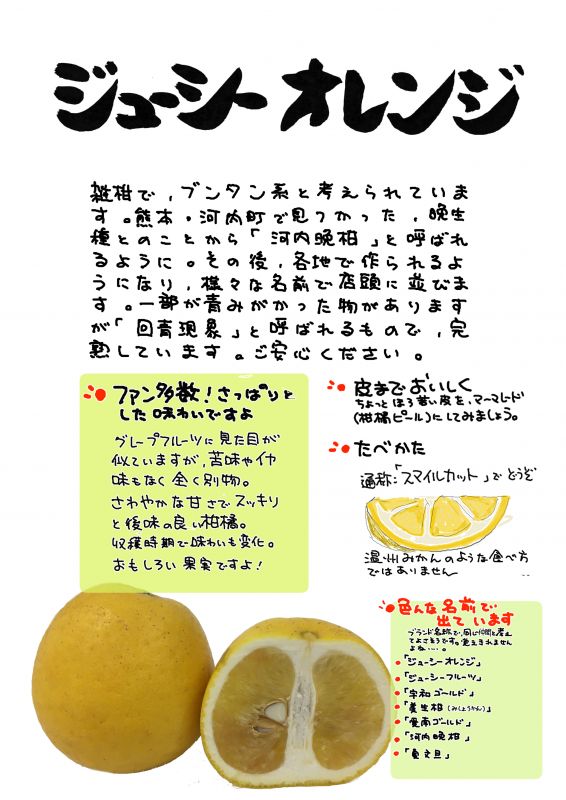 ジューシーオレンジ
雑柑で、ブンタン系と考えられていま
す。熊本・河内町で見つかった、晩生
種とのことから「河内晩柑」と呼ばれ
るように。その後、各地で作られるよ
うになり、様々な名前で店頭に並びま
す。一部が青みがかった物があります
が「回青現象」と呼ばれるもので、完
熟しています。ご安心ください。
ファン多数！さっぱりと
した味わいですよ
グレープフルーツに見た目が
似ていますが、苦味やイヤ
味もなく全く別物。
さわやかな甘さでスッキリ
と後味の良い柑橘。
収穫時期で味わいも変化。
おもしろい果実ですよ！
皮までおいしく
ちょっとほろ苦い皮を、マーマレード
(柑橘ピール)にしてみましょう。
たべかた
通称：「スマイルカット」でどうぞ
温州みかんのような食べ方
ではありません
色んな名前で
出ています
ブランド名称で、同じ仲間と考え
てよさそうです。覚えきれません
よね…。
「ジューシーオレンジ」
「ジューシーフルーツ」
「宇和ゴールド」
「美生柑(みしょうかん)」
「愛南ゴールド」
「河内晩柑」
「夏文旦」